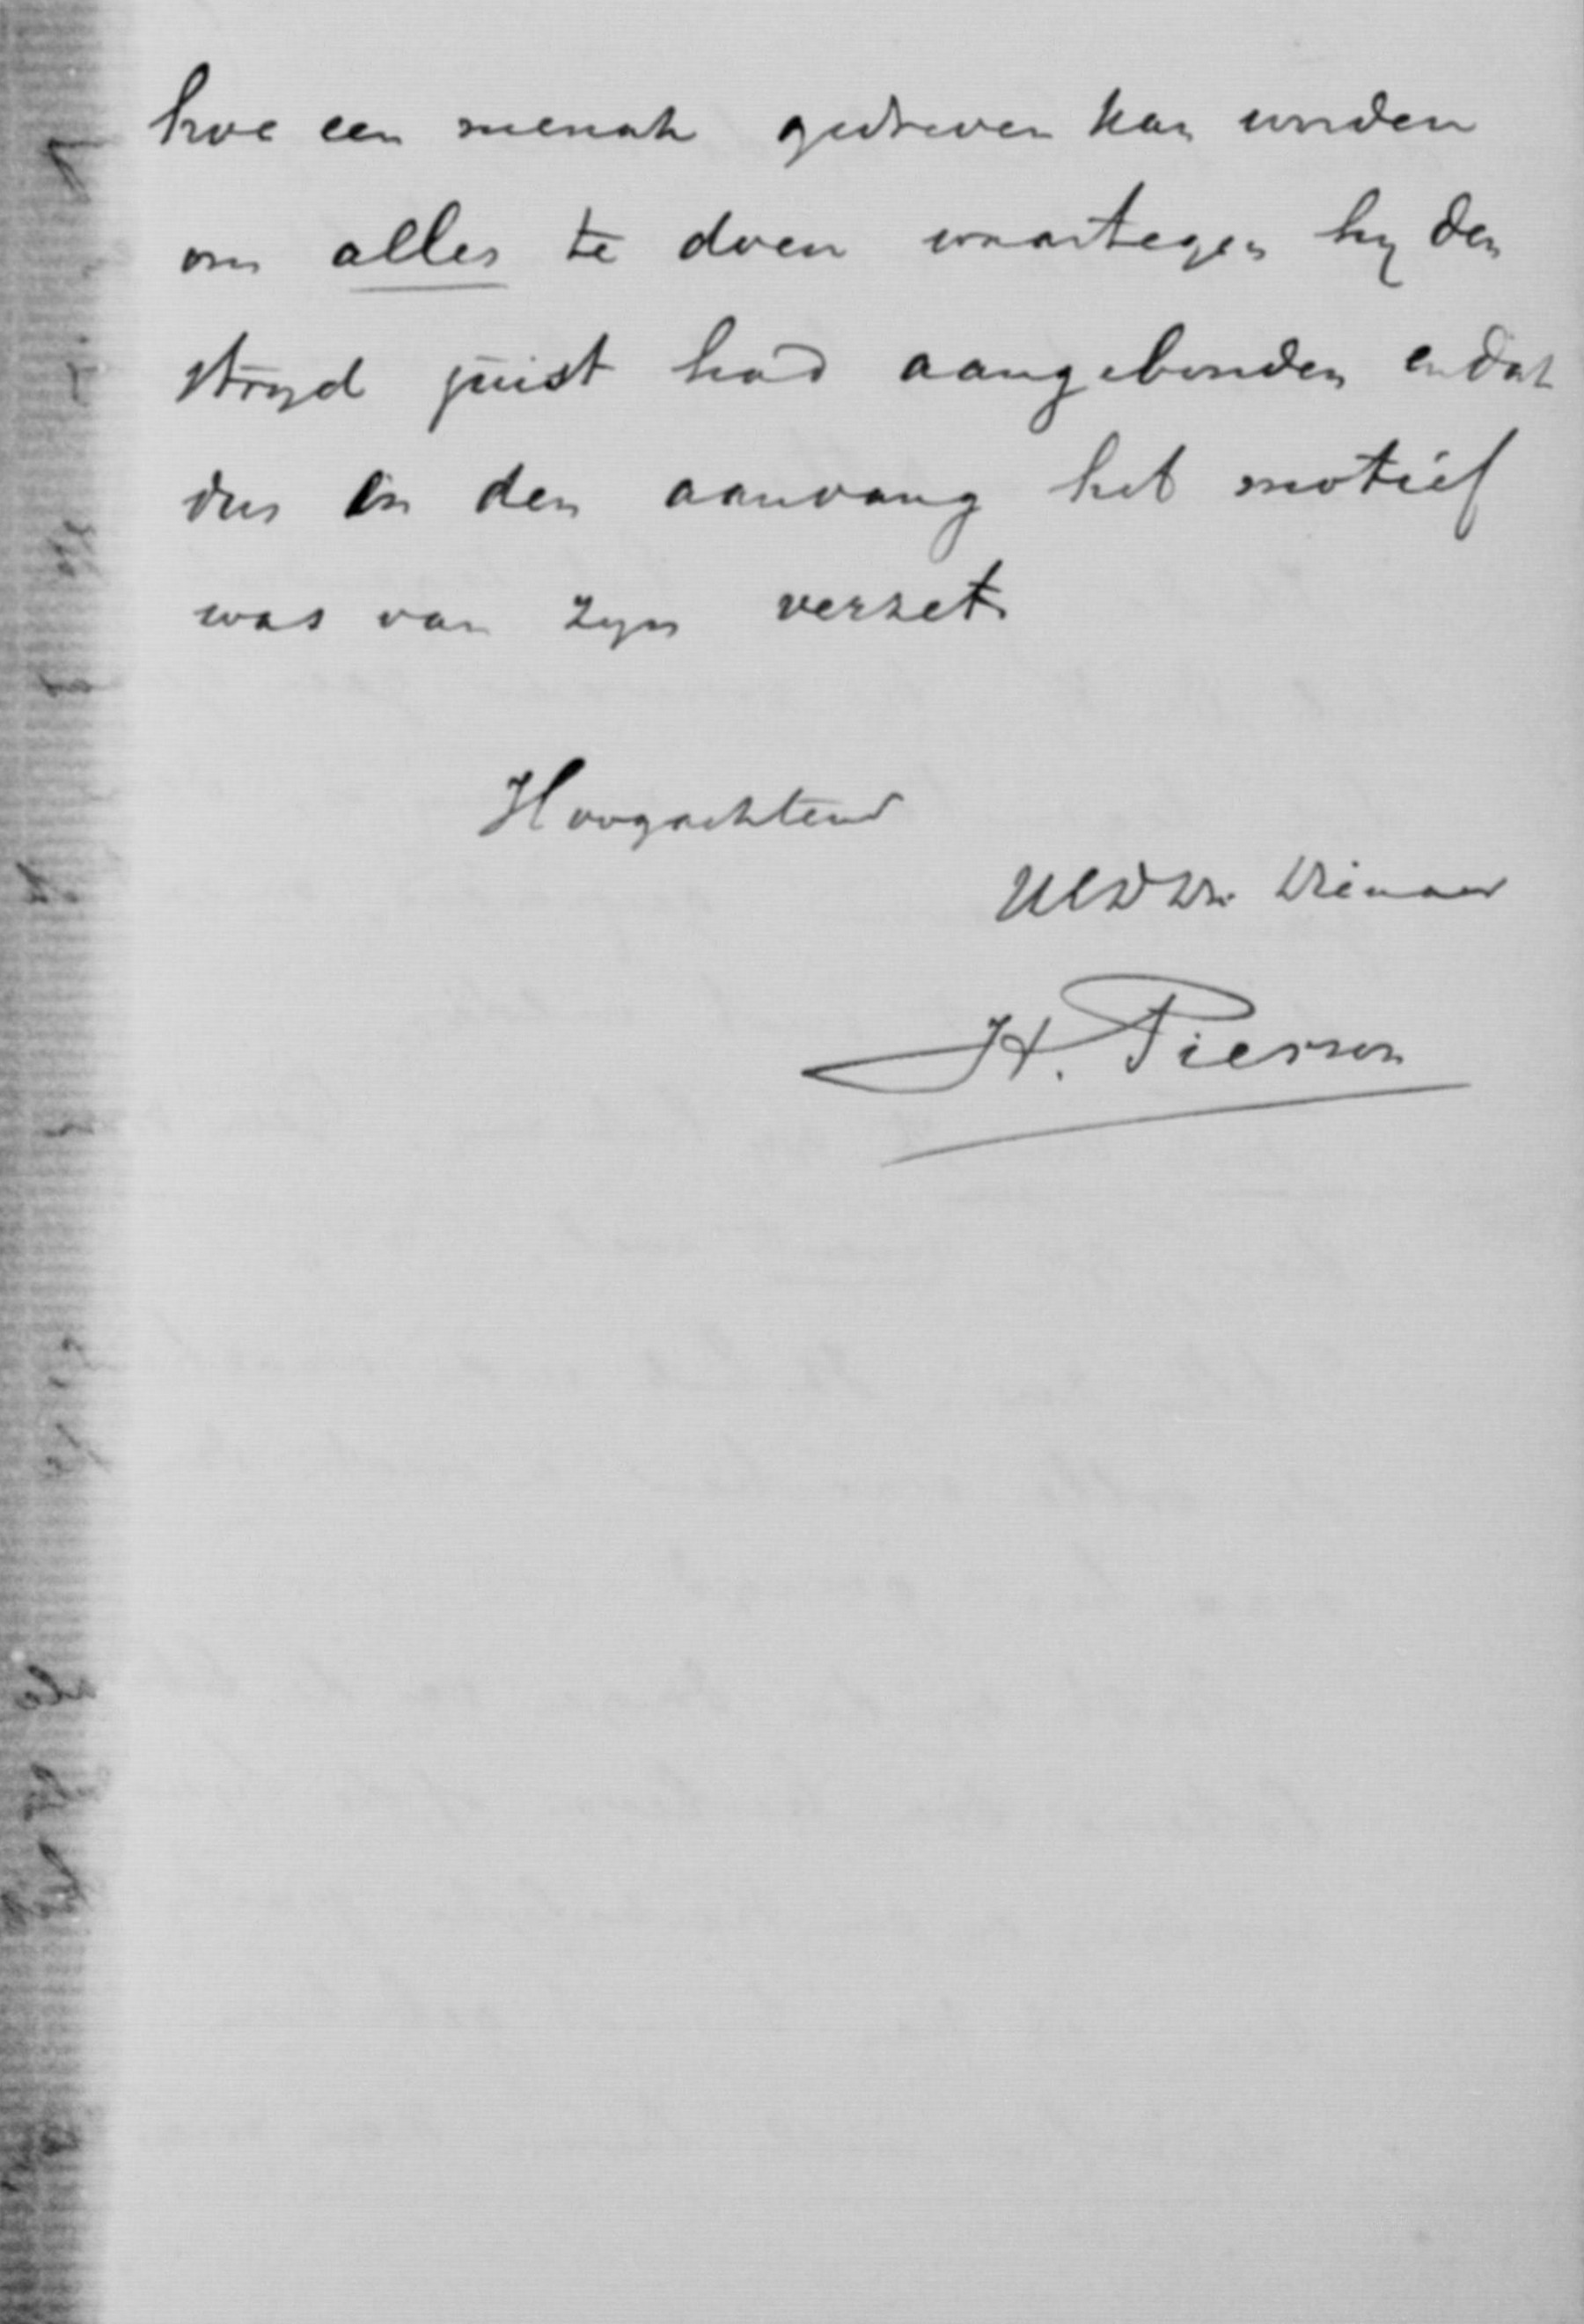 hoe een mensch gedreven kan worden
om alles te doen waartegen hy den
stryd juist had aangebonden en dat
dus in den aanvang het motief
was van zyn verzet.
Hoogachtend
UEDDw. Dienaar
H. Pierson